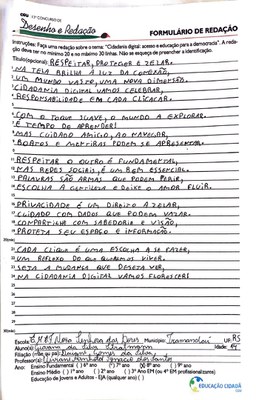 CGU 15º CONCURSO DE
Desenho e Redação
FORMULÁRIO DE REDAÇÃO
Instruções: Faça uma redação sobre o tema: "Cidadania digital: acesso e educação para a democracia". A redação deve ter no mínimo 20 e no máximo 30 linhas. Não se esqueça de preencher a identificação.
Título(opcional): RESPEITAR, PROTEGER E ZELAR.
NA TELA BRILHA A LUZ DA CONEXÃO,
UM MUNDO VASTE, UMA NOVA DIMENSÃO.
CIDADANIA DIGITAL VAMOS CELEBRAR,
RESPONSABILIDADE EM CADA CLICAR.
COM O TOQUE SUAVE, O MUNDO A EXPLORAR.
É TEMPO DE APRENDER!
MAS CUIDADO AMIGO, AO NAVEGAR,
BOATOS E MENTIRAS PODEM SE APRESENTAR.
RESPEITAR O OUTRO É FUNDAMENTAL,
NAS REDES SOCIAIS, É UM BEM ESSENCIAL.
PALAVRAS SÃO ARMAS QUE PODEM FERIR,
ESCOLHA A GENTILEZA E DEIXE O AMOR FLUIR.
PRIVACIDADE É UM DIREITO A ZELAR,
CUIDADO COM DADOS QUE PODEM VAZAR.
COMPARTILHA COM SABEDORIA E VISÃO,
PROTEJA SEU ESPAÇO E INFORMAÇÃO.
20(min)
CADA CLIQUE É UMA ESCOLHA A SE FAZER,
UM REFLEXO DO QUE QUEREMOS VIVER.
SEJA A MUDANÇA QUE DESEJA VER,
NA CIDADANIA DIGITAL VAMOS FLORESCER!
30(máx)
Escola: Nossa Senhora das Dores Município: Tramandaí UF: RS
Aluno(a): da Silva Idade:
Filiação (mãe ou pai): Gomes da Silva
Professor(a): dos Santos
Ano: Ensino Fundamental ( ) 6º ano ( ) 7º ano (X) 8º ano ( ) 9º ano
Ensino Médio ( ) 1º ano ( ) 2º ano ( ) 3º Ano EM (ou 4º EM profissionalizante)
Educação de Jovens e Adultos - EJA (qualquer ano) ( )
EDUCAÇÃO CIDADÃ
CGU